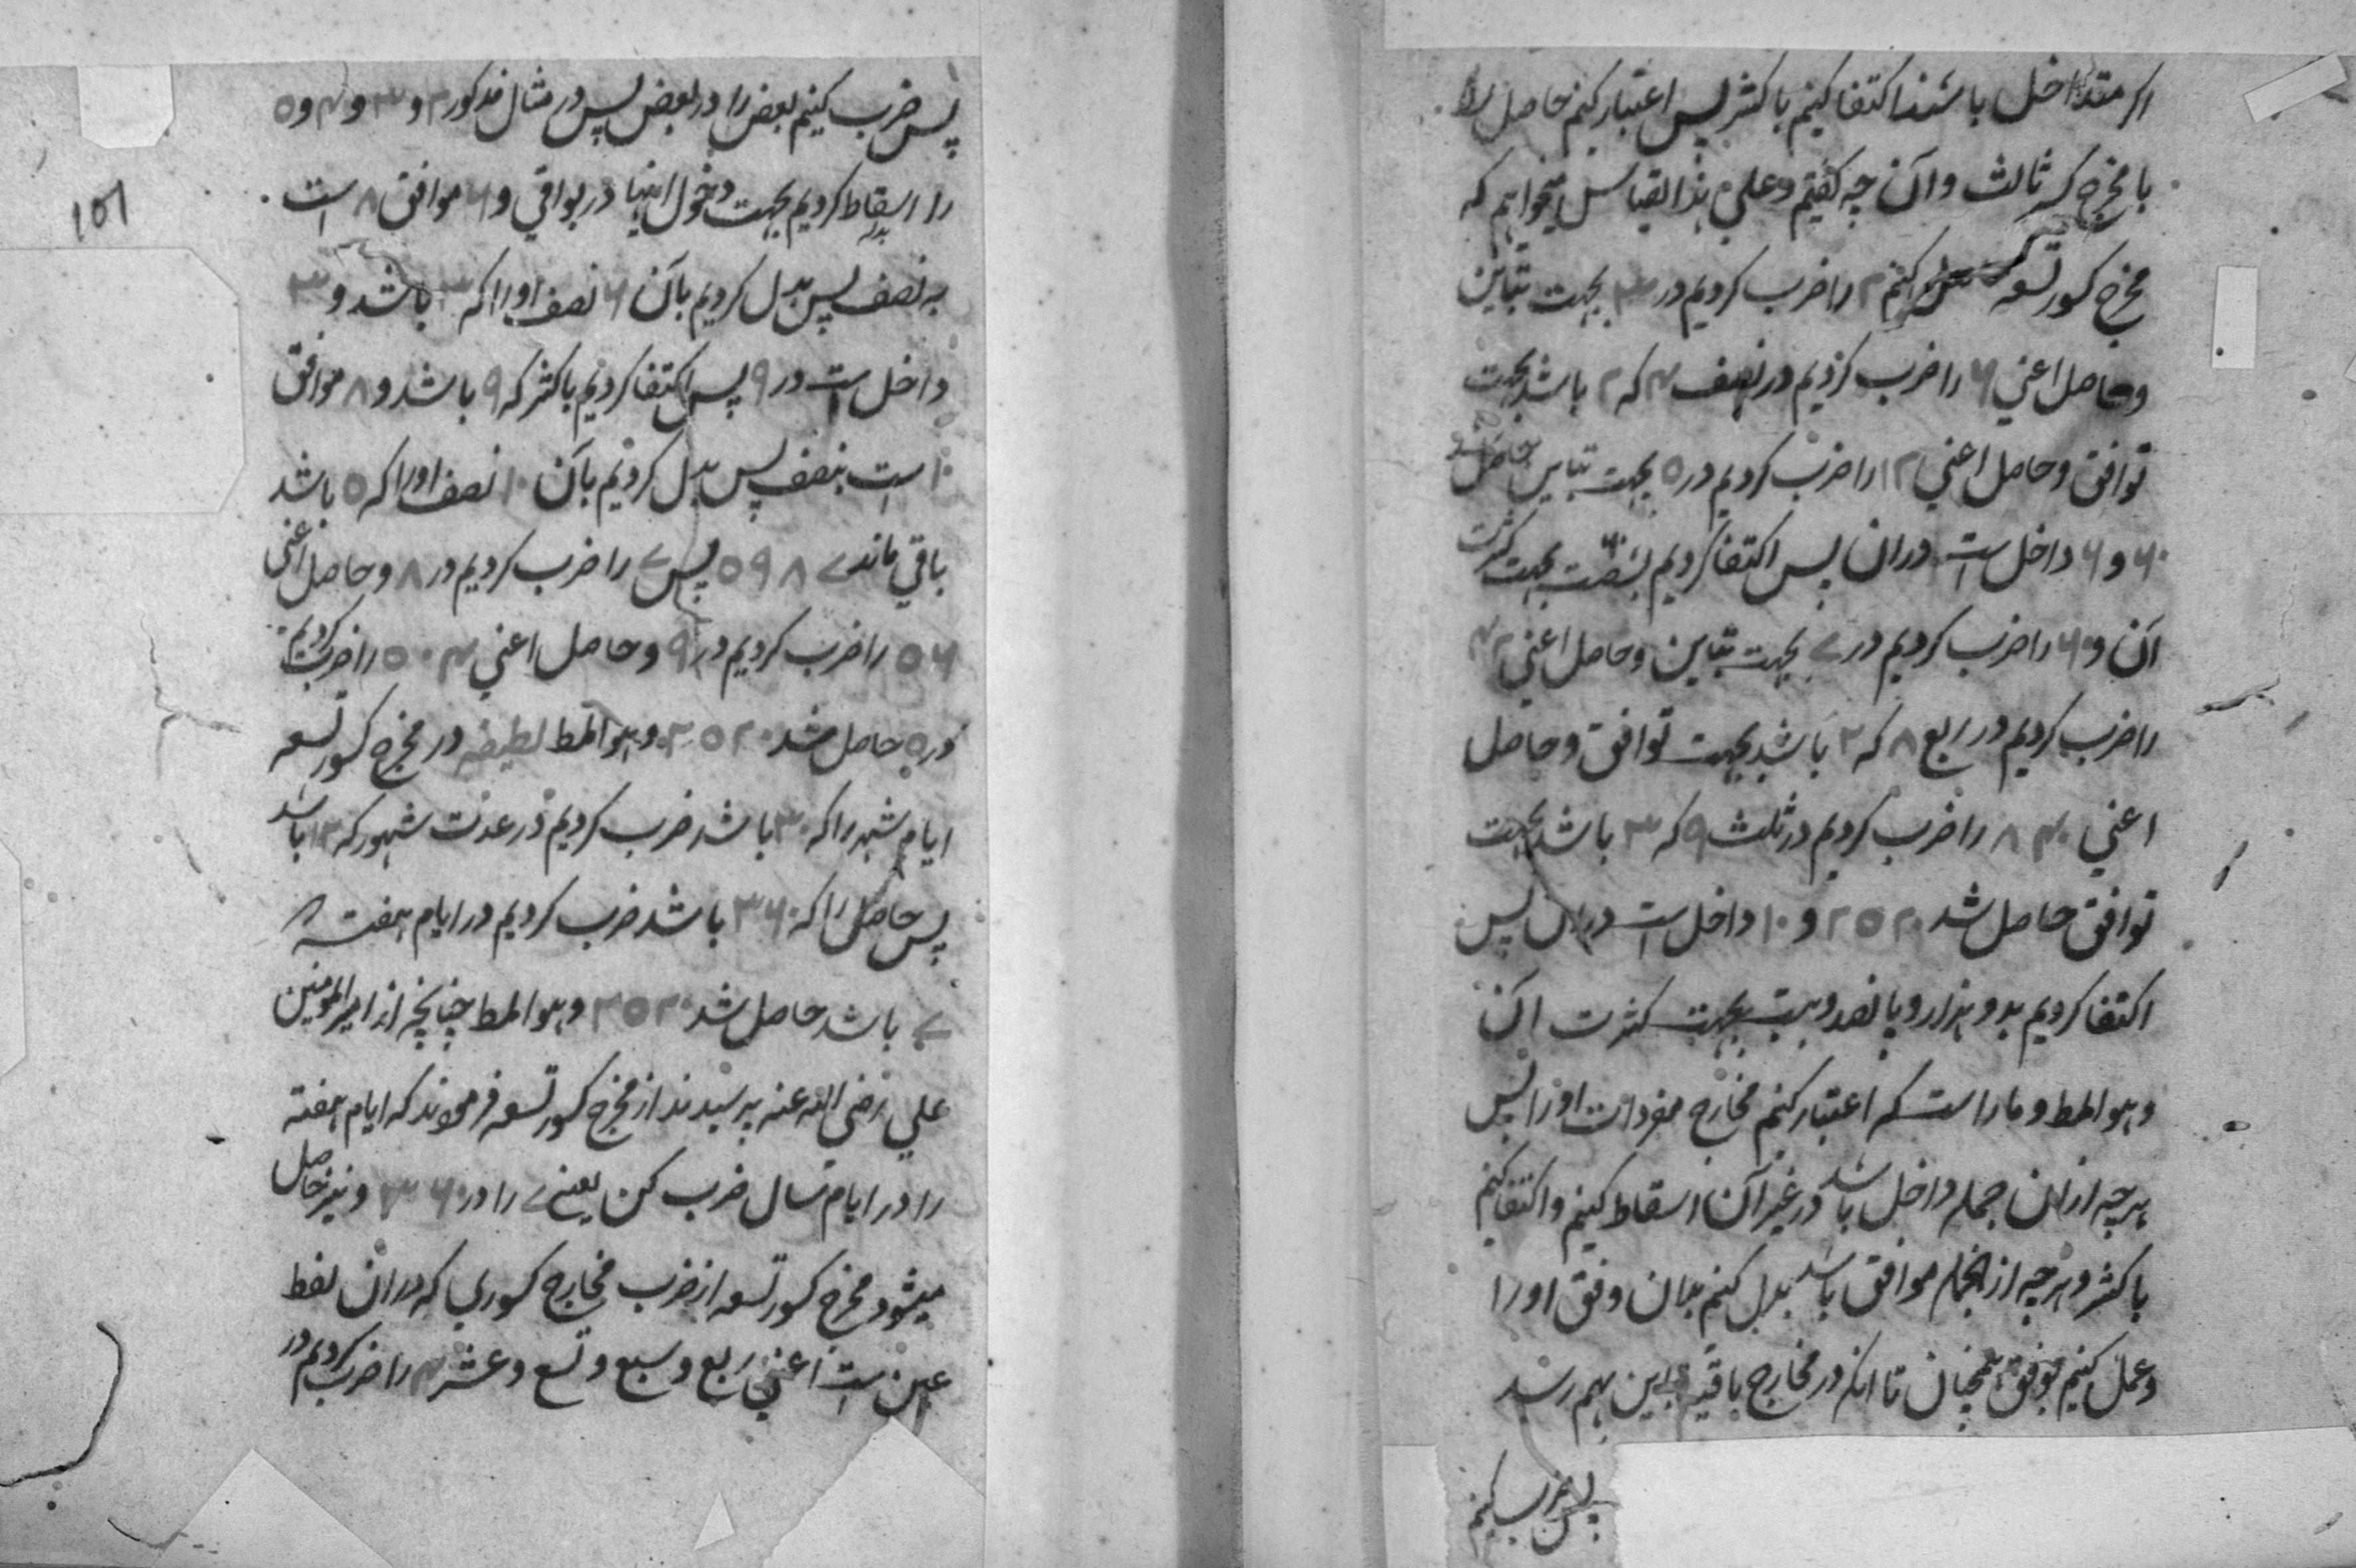 اکر متداخل باشند اکتفا کنیم باکثر پس اعتبار کنم حاصل را
با مخرج کسر ثالث وآن چه کفتیم وعلی هذا القیاس میخواهم که
مخرج کسور تسعه کنم ۲ را ضرب کردیم در ۳ بجهت تباین
وحاصل اعنی ۶ را ضرب کردیم در نصف ۴ که ۲ باشد بجهت
توافق وحاصل اعنی ۱۲ را ضرب کردیم در ۵ بجهت تباین حاصل شد
۶۰ و ۶ داخل است دران پس اکتفا کردیم بشصت بجهت کثرت
آن و ۶۰ را ضرب کردیم در ۷ بجهت تباین وحاصل اعنی ۴۲۰
را ضرب کردیم در ربع ۸ که ۲ باشد بجهت توافق وحاصل
اعنی ۸۴۰ را ضرب کردیم در ثلث ۹ که ۳ باشد بجهت
توافق حاصل شد ۲۵۲۰ و ۱۰ داخل است دران پس
اکتفا کردیم بدو هزار و پانصد و بیست بجهت کثرت آن
وهو المط وما را است که اعتبار کنم مخارج مفردات اورا پس
هرچه ازان جمله داخل باشد در غیر آن اسقاط کنیم واکتفا کنیم
باکثر وهرچه ازانجمله موافق باشد بدل کنم بدان وفق اورا
وعمل کنیم بوفق همچنان تا انکه در مخارج باقیه تباین بهم رسد
پس ضرب کنیم
101
پس ضرب کنیم بعض را در بعض پس در مثال مذکور ۲ و ۳ و ۴ و ۵
را اسقاط کردیم بجهت دخول اینها در بواقی و ۶ موافق ۸ است
به نصف پس بدل کردیم بآن ۶ نصف اورا که ۳ باشد و ۳
داخل است در ۹ پس اکتفا کردیم باکثر که ۹ باشد و ۸ موافق
۱۰ است بنصف پس بدل کردیم بآن ۱۰ نصف اورا که ۵ باشد
باقی ماند ۷ ۸ ۹ ۵ پس ۷ را ضرب کردیم در ۸ وحاصل اعنی
۵۶ را ضرب کردیم در ۹ وحاصل اعنی ۵۰۴ را ضرب کردیم
در ۵ حاصل شد ۲۵۲۰ وهو المط لطیفه در مخرج کسور تسعه
ایام شهر را که ۳۰ باشد ضرب کردیم در عدت شهور که ۱۲ باشد
پس حاصل را که ۳۶۰ باشد ضرب کردیم در ایام هفته که
۷ باشد حاصل شد ۲۵۲۰ وهو المط چنانچه از امیرالمومنین
علی رضی الله عنه پرسیدند از مخرج کسور تسعه فرمودند که ایام هفته
را در ایام سال ضرب کن یعنی ۷ را در ۳۶۰ و نیز حاصل
میشود مخرج کسور تسعه از ضرب مخارج کسوری که دران لفظ
عین است اعنی ربع وسبع وتسع وعشر ۴ را ضرب کردیم در